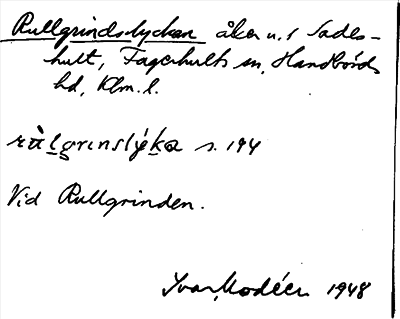 Rullgrindslyckan åker u. 1 Sades-
hult, Fagerhults sn, Handbörds
hd, Klm. l.
s. 194
Vid Rullgrinden.
Ivar Modéer 1948